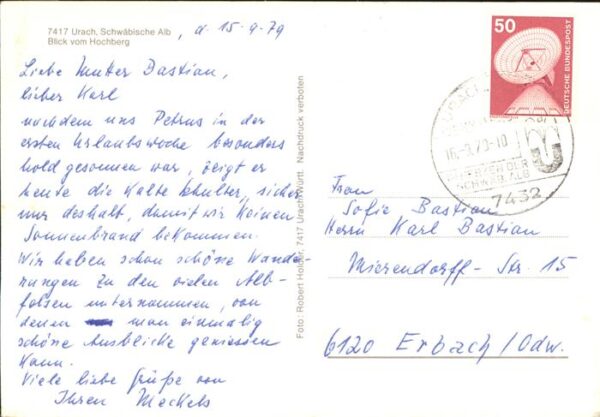 7417 Urach, Schwäbische Alb
Blick vom Hochberg
, d. 15-9-79
Liebe Mutter Bastian,
lieber Karl
nachdem uns Petrus in der
ersten Urlaubswoche besonders
hold gesonnen war, zeigt er
heute die kalte Schulter, sicher
nur deshalb, damit wir keinen
Sonnenbrand bekommen.
Wir haben schon schöne Wande-
rungen zu den vielen Alb-
felsen unternommen, von
denen man einmalig
schöne Ausblicke geniessen
kann.
Viele liebe Grüße von
Ihren Meckels
Foto: Robert Holder, 7417 Urach/Württ. Nachdruck verboten
50
DEUTSCHE BUNDESPOST
-9.79-10
HERZEN DER
SCHWÄB. ALB
7432
Frau
Sofie Bastian
Herrn Karl Bastian
Mierendorff-Str. 15
6120 Erbach/Odw.